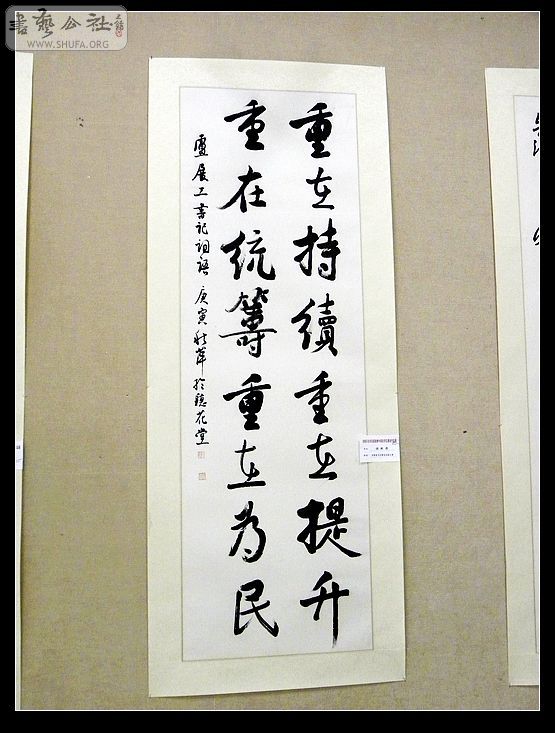 書藝公社
WWW.SHUFA.ORG
重在持續重在提升
重在统籌重在为民
盧展工書記词語 庚寅秋苹於聽花堂